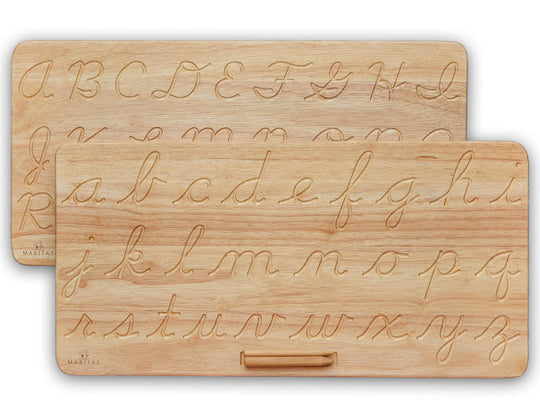 A B C D E F G H I
J
R
MARITAS
a b c d e f g h i
j k l m n o p q
r s t u v w x y z
MARITAS